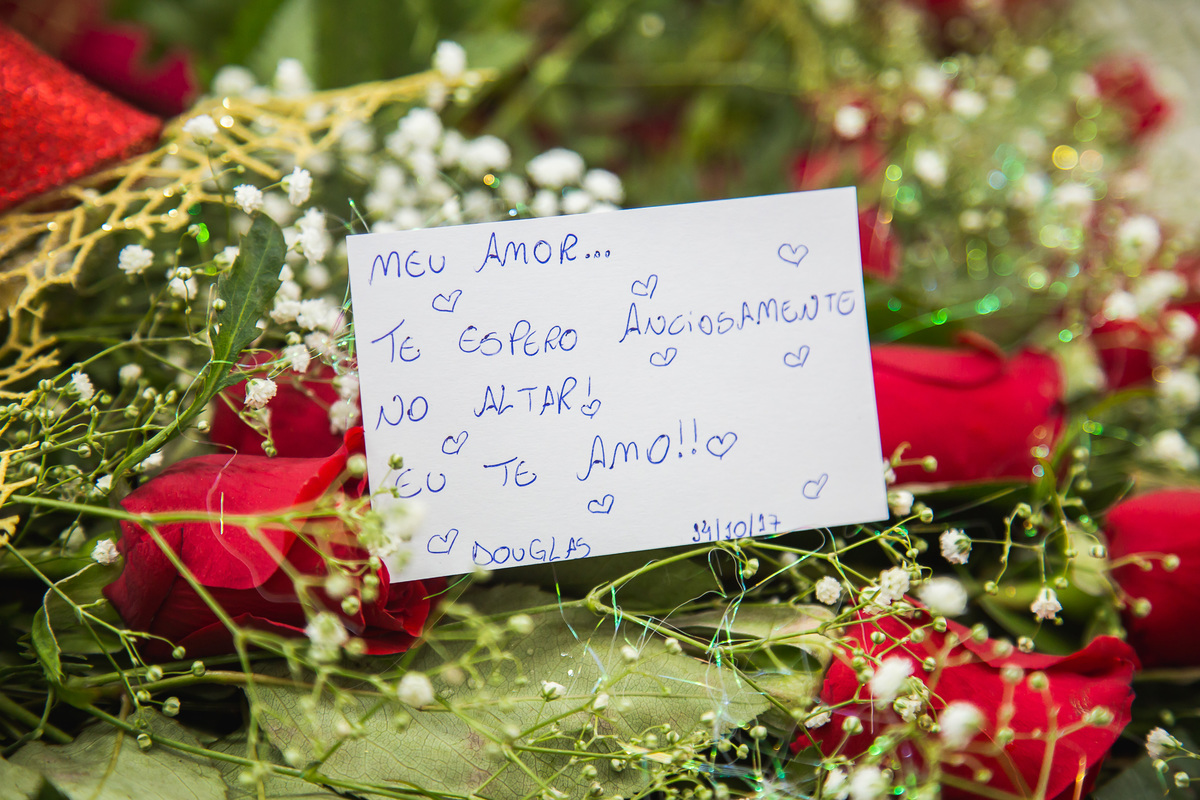 MEU AMOR...
TE ESPERO ANCIOSAMENTE
NO ALTAR!
EU TE AMO!!
14/10/17
DOUGLAS